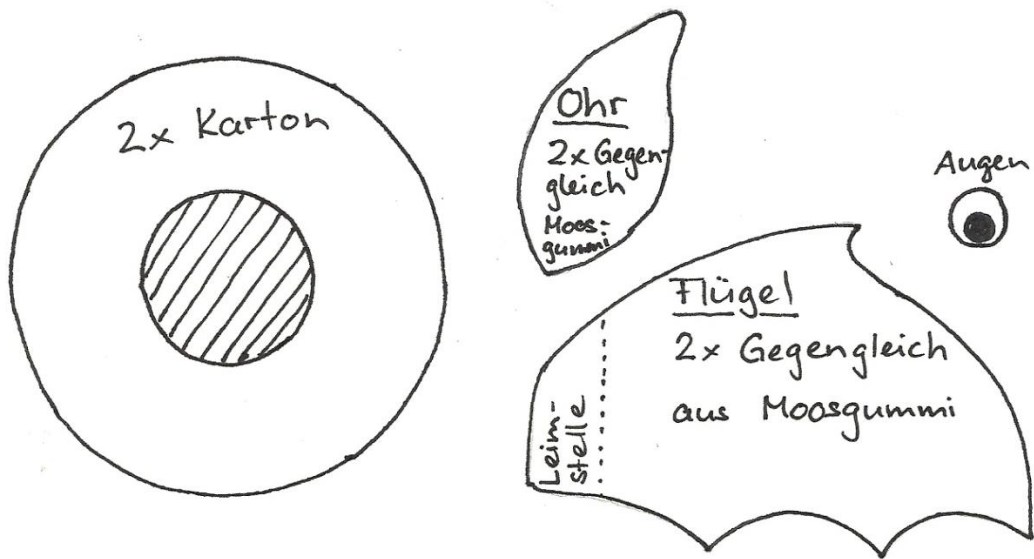 2x Karton
Ohr
2x Gegen-
gleich
Moos-
gummi
Augen
Flügel
2x Gegengleich
aus Moosgummi
Leim-
stelle